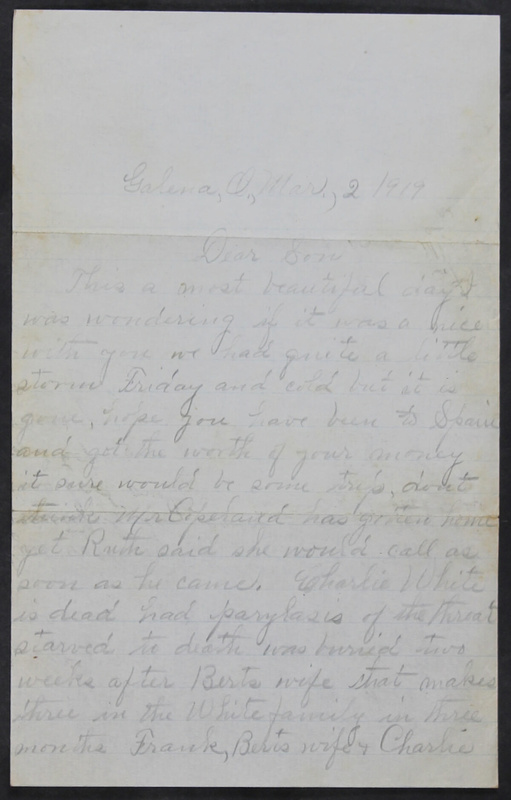 Galena, O, Mar., 2 1919
Dear Son
This a most beautiful day I
was wondering if it was a nice
with you we had quite a little
storm Friday and cold but it is
gone, hope you have been to Spain
and got the worth of your money
it sure would be some trip, dont
think Mr Copeland has gotten home
yet Ruth said she would call as
soon as he came. Charlie White
is dead had parylasis of the throat
starved to death was buried two
weeks after Berts wife that makes
three in the White family in three
months Frank, Berts wife & Charlie